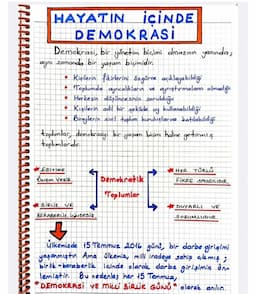 HAYATIN İÇİNDE
DEMOKRASİ
Demokrasi, bir yönetim biçimi olmasının yanında,
aynı zamanda bir yaşam biçimidir.
• Kişilerin fikirlerini özgürce açıklayabildiği
• Toplumda ayrıcalıkların ve ayrıştırmaların olmadığı
• Herkesin düşüncesinin sorulduğu
• Kişilerin adil bir şekilde oy kullanabildiği
• Bireylerin sivil toplum kuruluşlarına katılabildiği
toplumlar, demokrasiyi bir yaşam biçimi hâline getirmiş
toplumlardır.
★ EĞİTİME
ÖNEM VERİR.
★ HER TÜRLÜ
FİKRE SAYGILIDIR.
Demokratik
Toplumlar
★ BİRLİK VE
BERABERLİK İÇİNDEDİR.
★ DUYARLI VE
SORUMLUDUR.
Ülkemizde 15 Temmuz 2016 günü, bir darbe girişimi
yaşanmıştır. Ama ülkemiz, milli iradeye sahip çıkmış;
birlik-beraberlik içinde olarak darbe girişimini ön-
lemiştir. Bu nedenle her 15 Temmuz,
"DEMOKRASİ VE MİLLİ BİRLİK GÜNÜ" olarak anılır.